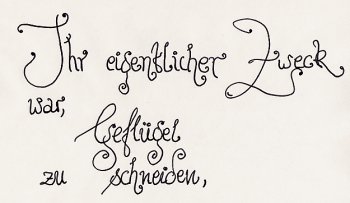 Ihr eigentlicher Zweck
war,
Geflügel
zu schneiden,